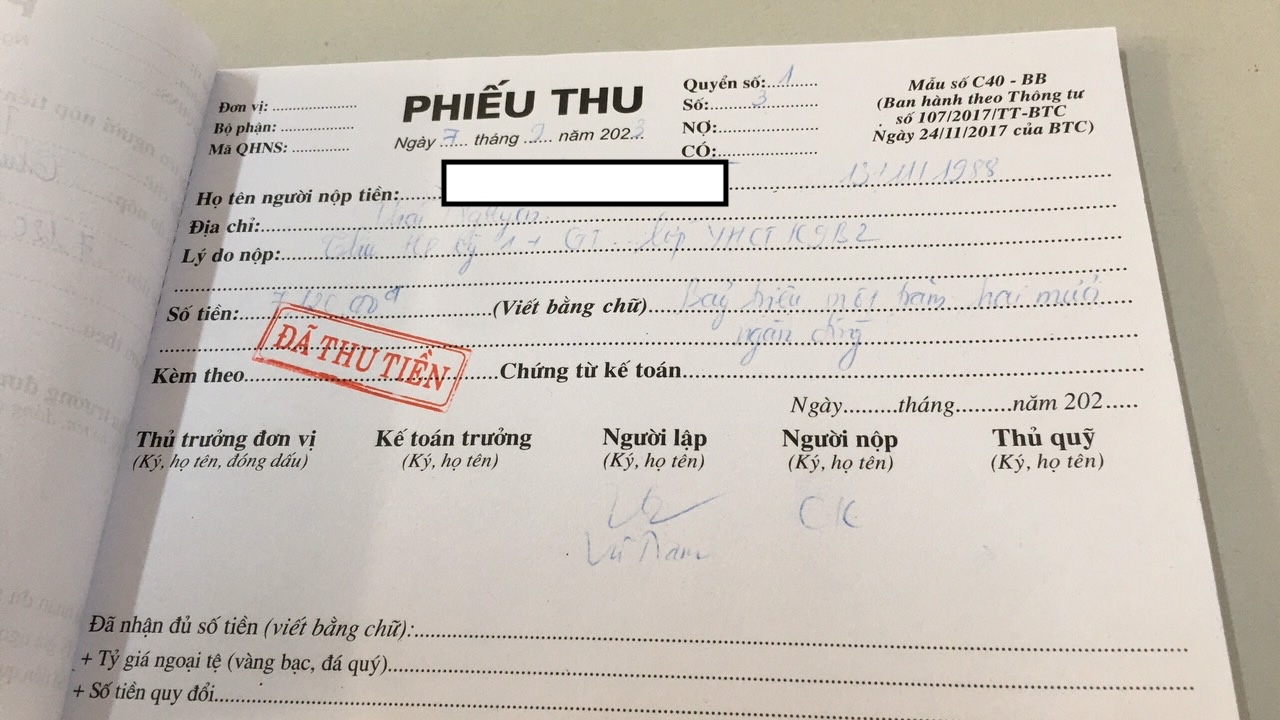 Đơn vị:
Bộ phận:
Mã QHNS:
PHIẾU THU
Ngày 7 tháng 2 năm 2023
Quyển số: 1
Số: 3
NỢ:
CÓ:
Mẫu số C40 - BB
(Ban hành theo Thông tư
số 107/2017/TT-BTC
Ngày 24/11/2017 của BTC)
Họ tên người nộp tiền: 13/11/1988
Địa chỉ: Thái Nguyên
Lý do nộp: Thu HP kỳ 1 + GT lớp YHCT K9B2
Số tiền: 7.120.000đ (Viết bằng chữ) Bảy triệu một trăm hai mươi
ngàn đồng
ĐÃ THU TIỀN
Kèm theo Chứng từ kế toán
Ngày tháng năm 202
Thủ trưởng đơn vị Kế toán trưởng Người lập Người nộp Thủ quỹ
(Ký, họ tên, đóng dấu) (Ký, họ tên) (Ký, họ tên) (Ký, họ tên) (Ký, họ tên)
CK
Đã nhận đủ số tiền (viết bằng chữ):
+ Tỷ giá ngoại tệ (vàng bạc, đá quý)
+ Số tiền quy đổi